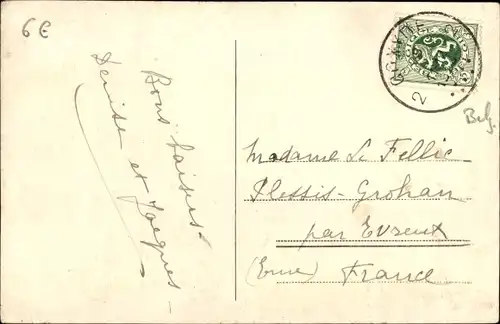 6€
Bons baisers
Denise et Jacques
Belg.
Madame Le Fellic
Plessis-Grohan
par Evreux
(Eure) France